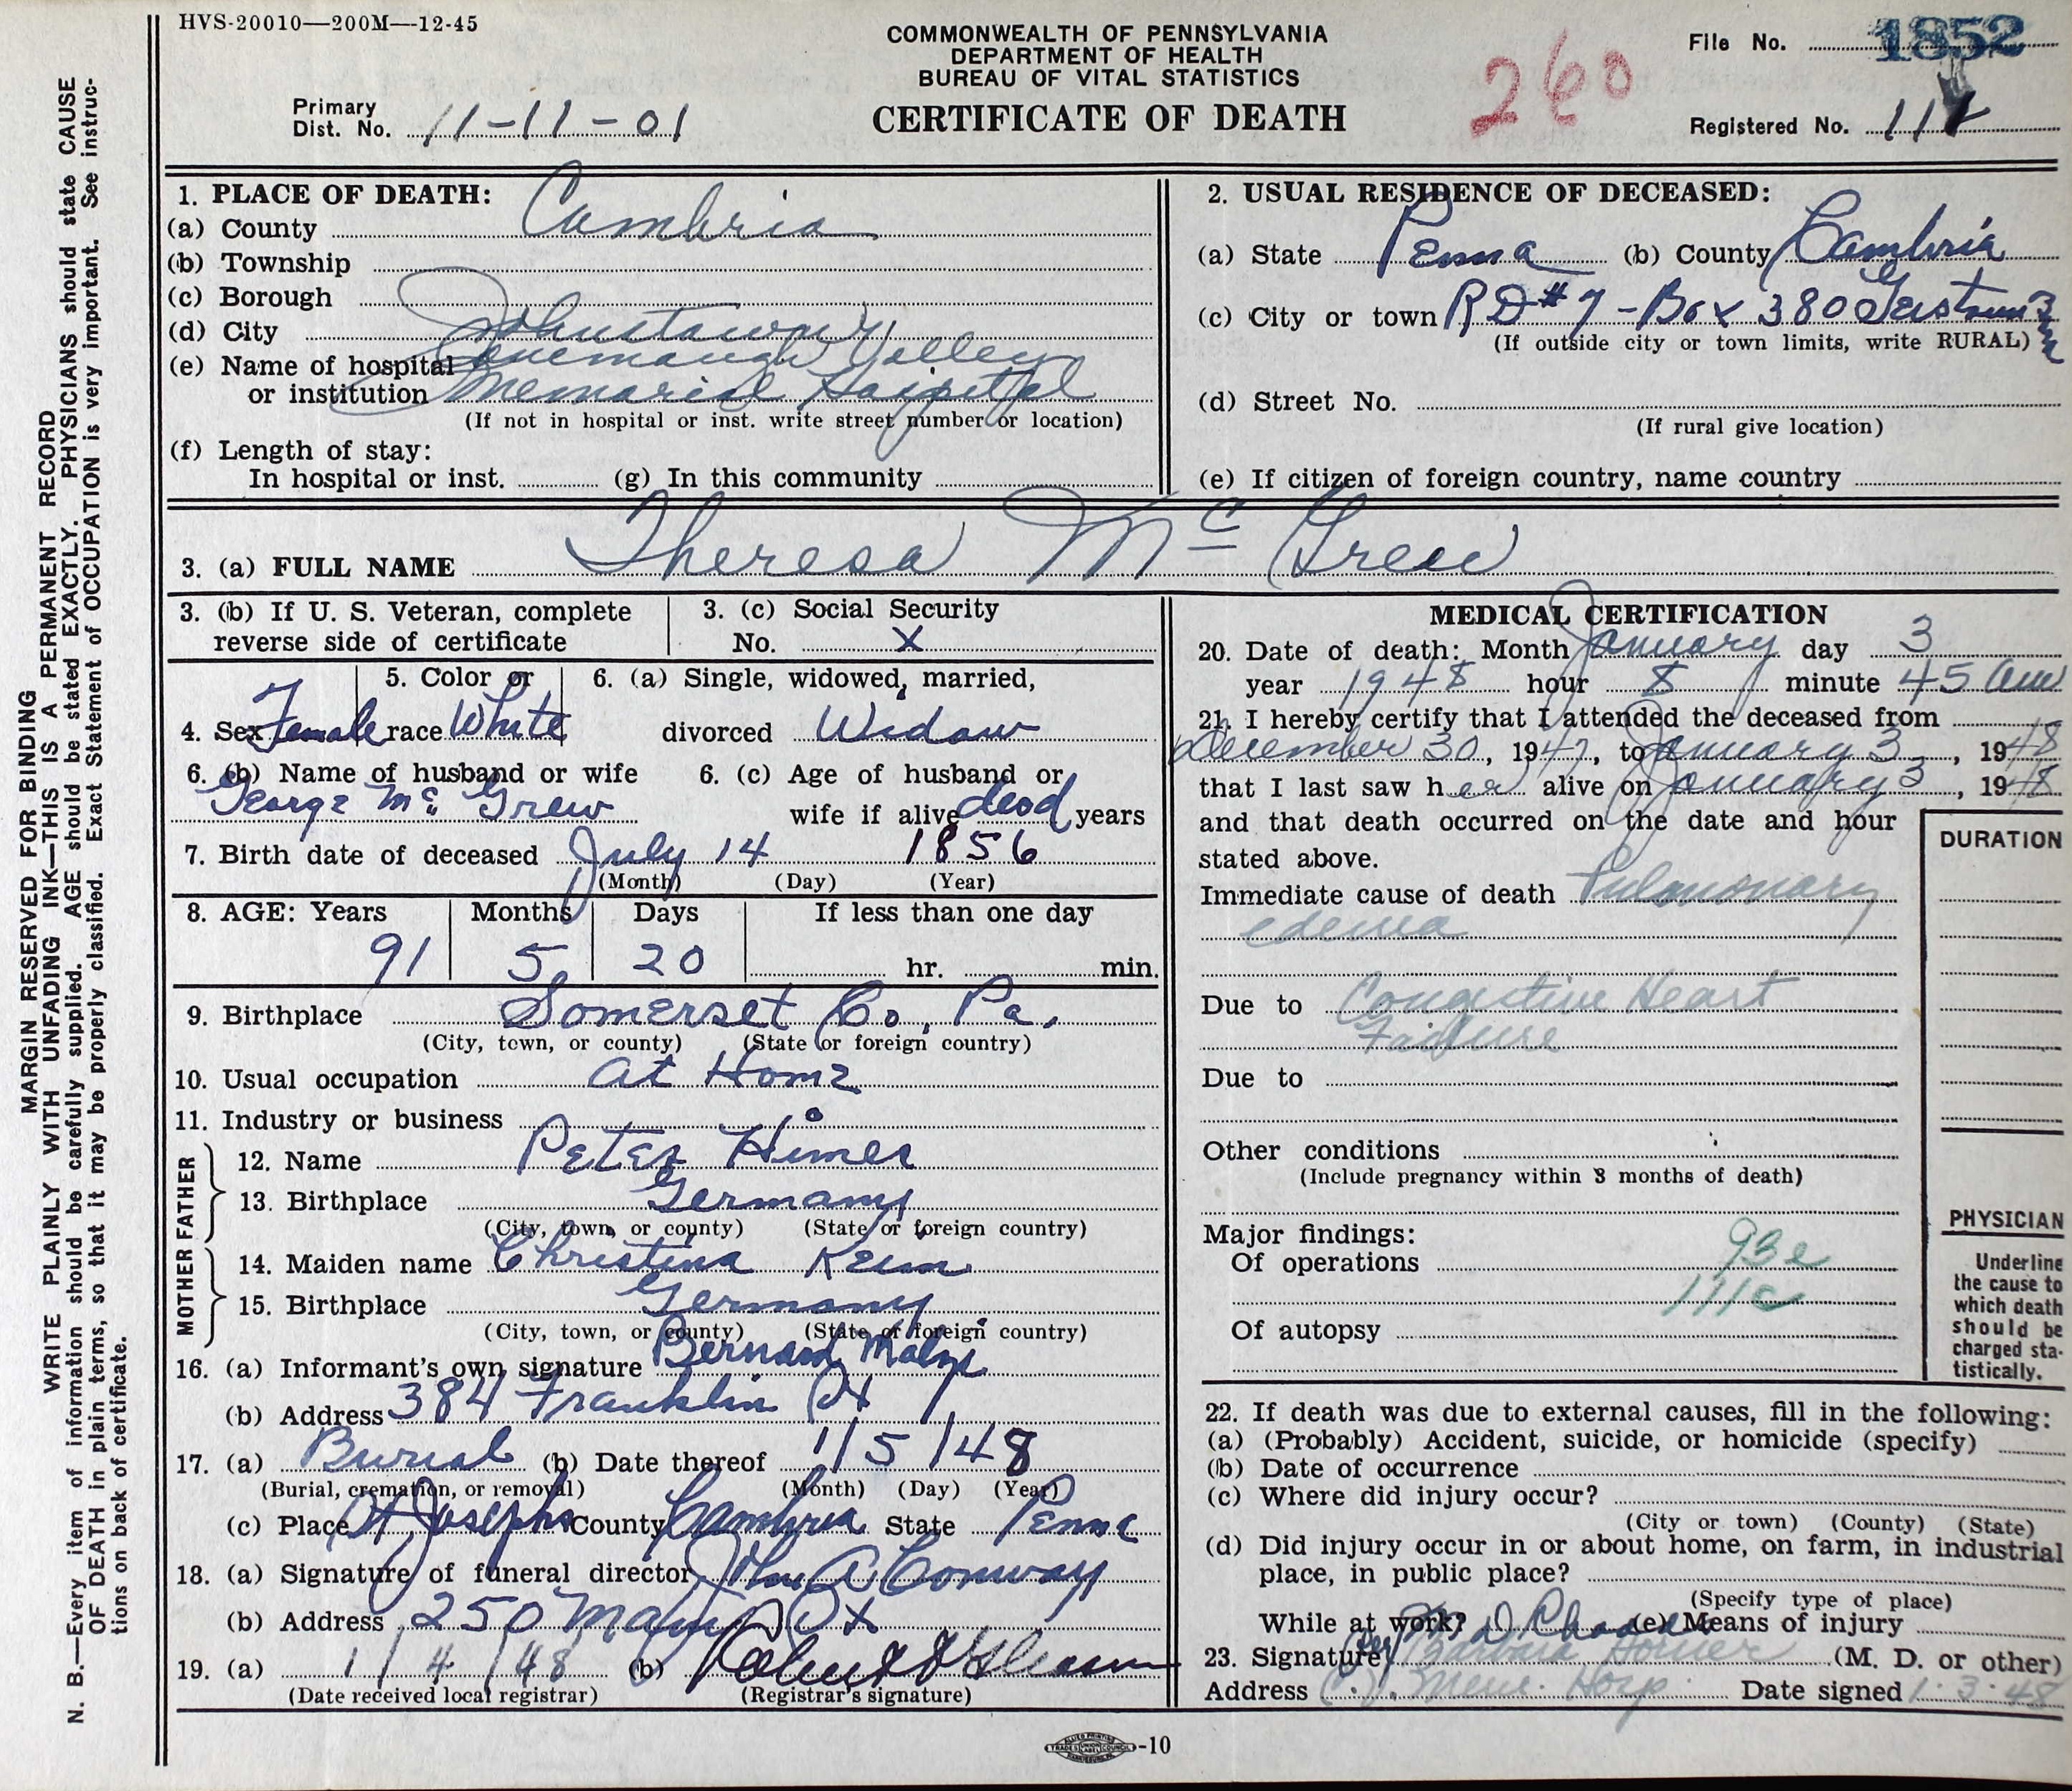 HVS-20010—200M—12-45
COMMONWEALTH OF PENNSYLVANIA
DEPARTMENT OF HEALTH
BUREAU OF VITAL STATISTICS
CERTIFICATE OF DEATH
260
File No. 1852
Primary
Dist. No. 11-11-01
Registered No. 11
MARGIN RESERVED FOR BINDING
WRITE PLAINLY WITH UNFADING INK—THIS IS A PERMANENT RECORD
N. B.—Every item of information should be carefully supplied. AGE should be stated EXACTLY. PHYSICIANS should state CAUSE
OF DEATH in plain terms, so that it may be properly classified. Exact Statement of OCCUPATION is very important. See instruc-
tions on back of certificate.
1. PLACE OF DEATH:
(a) County Cambria
(b) Township
(c) Borough
(d) City Johnstown
(e) Name of hospital Conemaugh Valley
or institution Memorial Hospital
(If not in hospital or inst. write street number or location)
(f) Length of stay:
In hospital or inst. (g) In this community
2. USUAL RESIDENCE OF DECEASED:
(a) State Penna (b) County Cambria
(c) City or town RD #7 - Box 380 Geistown
(If outside city or town limits, write RURAL)
(d) Street No.
(If rural give location)
(e) If citizen of foreign country, name country
3. (a) FULL NAME Theresa Mc Grew
3. (b) If U. S. Veteran, complete
reverse side of certificate
3. (c) Social Security
No. X
4. Sex Female
5. Color or
race White
6. (a) Single, widowed, married,
divorced Widow
6. (b) Name of husband or wife
George Mc Grew
6. (c) Age of husband or
wife if alive dead years
7. Birth date of deceased July 14 1856
(Month) (Day) (Year)
8. AGE: Years Months Days If less than one day
91 5 20 hr. min.
9. Birthplace Somerset Co, Pa.
(City, town, or county) (State or foreign country)
10. Usual occupation At Home
11. Industry or business
FATHER
12. Name Peter Himer
13. Birthplace Germany
(City, town, or county) (State or foreign country)
MOTHER
14. Maiden name Christina Keim
15. Birthplace Germany
(City, town, or county) (State or foreign country)
16. (a) Informant's own signature Bernard
(b) Address 384 Franklin St
17. (a) Burial (b) Date thereof 1/5/48
(Burial, cremation, or removal) (Month) (Day) (Year)
(c) Place St Josephs County Cambria State Penna
18. (a) Signature of funeral director John A Conway
(b) Address 250 Main St
19. (a) 1/4/48 (b)
(Date received local registrar) (Registrar's signature)
MEDICAL CERTIFICATION
20. Date of death: Month January day 3
year 1948 hour 8 minute 45 am
21. I hereby certify that I attended the deceased from
December 30, 1947, to January 3, 1948
that I last saw her alive on January 3, 1948
and that death occurred on the date and hour
stated above.
Immediate cause of death Pulmonary
edema
Due to Congestive Heart
Failure
Due to
Other conditions
(Include pregnancy within 3 months of death)
Major findings:
Of operations 93e
111c
Of autopsy
DURATION
PHYSICIAN
Underline
the cause to
which death
should be
charged sta-
tistically.
22. If death was due to external causes, fill in the following:
(a) (Probably) Accident, suicide, or homicide (specify)
(b) Date of occurrence
(c) Where did injury occur?
(City or town) (County) (State)
(d) Did injury occur in or about home, on farm, in industrial
place, in public place?
(Specify type of place)
While at work? (e) Means of injury
23. Signature Barbara Horner (M. D. or other)
Address Mem. Hosp. Date signed 1-3-48
ALLIED PRINTING
TRADES UNION LABEL COUNCIL
-10